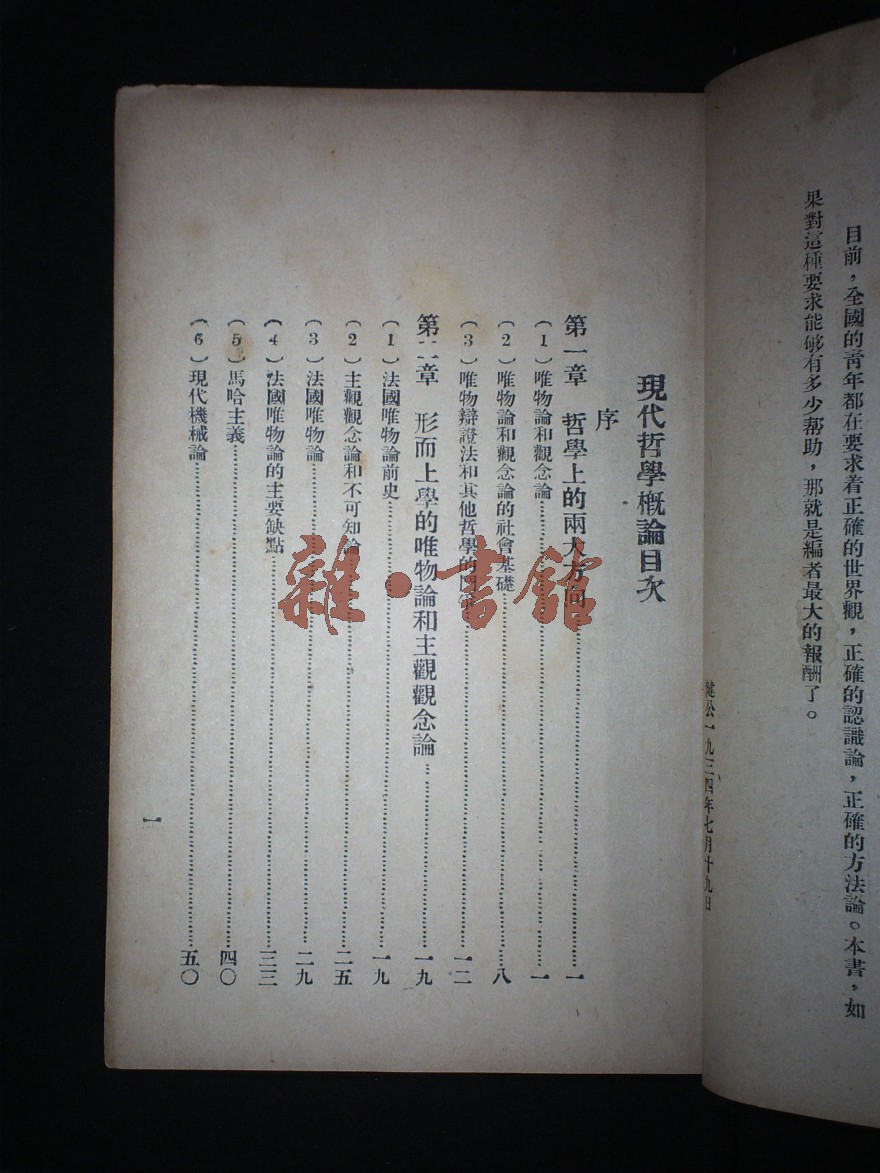 目前，全國的青年都在要求着正確的世界觀，正確的認識論，正確的方法論。本書，如
果對這種要求能够有多少帮助，那就是編者最大的報酬了。
公一九三四年七月十九日
現代哲學概論目次
序
第一章　哲學上的兩大方向……一
（1）唯物論和觀念論……一
（2）唯物論和觀念論的社會基礎……八
（3）唯物辯證法和其他哲學的……一二
第二章　形而上學的唯物論和主觀觀念論……一九
（1）法國唯物論前史……一九
（2）主觀觀念論和不可知論……二五
（3）法國唯物論……二九
（4）法國唯物論的主要缺點……三三
（5）馬哈主義……四〇
（6）現代機械論……五〇
一
雜·書館